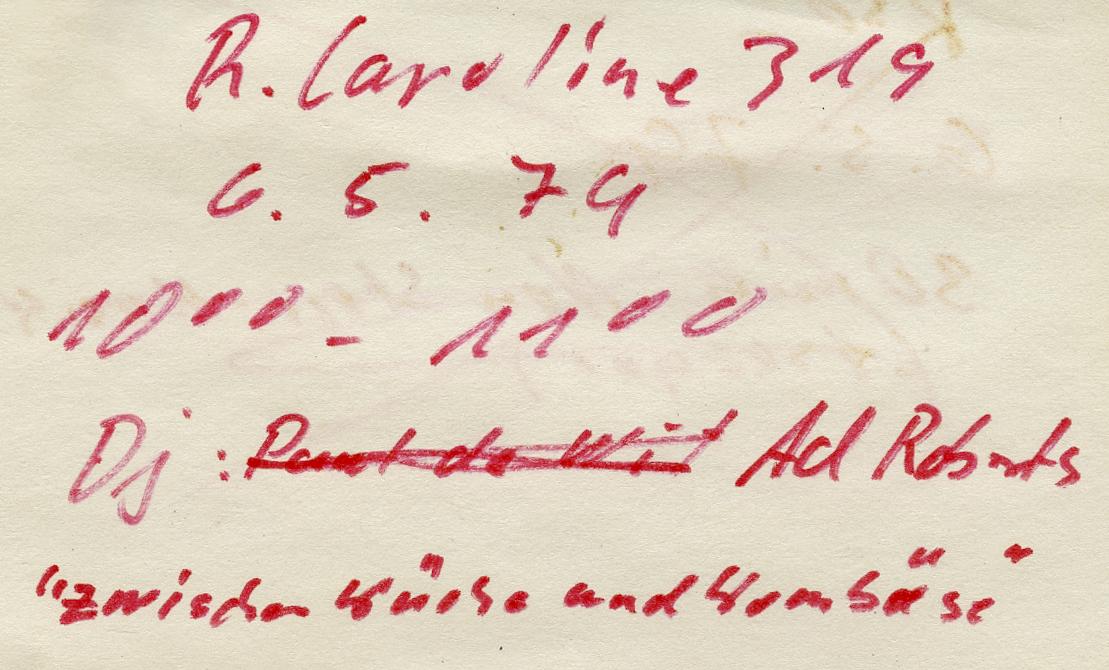 R. Caroline 319
6. 5. 79
10⁰⁰ - 11⁰⁰
Dj : Paul de Wit Ad Roberts
"zwischen Küche und Kombüse"